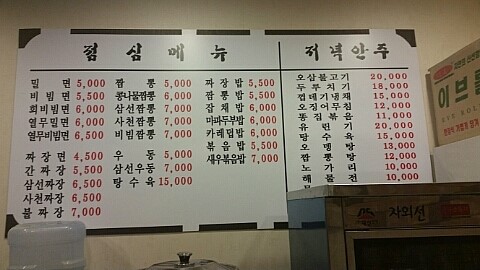 점심메뉴
밀면 5,000
비빔면 5,500
회비빔면 6,000
열무면 6,000
열무비빔면 6,500
짜장면 4,500
간짜장 5,500
삼선짜장 6,500
사천짜장 6,500
불짜장 7,000
짬뽕 5,000
콩나물짬뽕 6,000
삼선짬뽕 7,000
사천짬뽕 7,000
비빔짬뽕 7,000
우동 5,000
삼선우동 7,000
탕수육 15,000
짜장밥 5,500
짬뽕밥 5,500
잡채밥 6,000
마파두부밥 6,000
카레덮밥 6,000
볶음밥 5,500
새우볶음밥 7,000
저녁안주
오삼불고기 20,000
두루치기 18,000
15,000
오징어무침 12,000
11,000
유린기 20,000
탕수육 15,000
13,000
12,000
10,000
10,000
이브
자외선